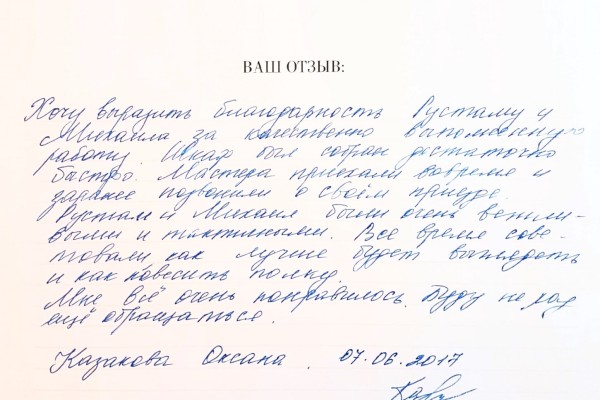 ВАШ ОТЗЫВ:
Хочу выразить благодарность Рустаму и
Михаила за качественно выполненную
работу. Шкаф был собран достаточно
быстро. Мастера приехали вовремя и
заранее позвонили о своём приезде.
Рустам и Михаил были очень вежли-
выми и тактичными. Все время сове-
товали как лучше будет выглядеть
и как повесить полку.
Мне всё очень понравилось. Буду
ещё обращаться.
Казакова Оксана. 07.06.2017